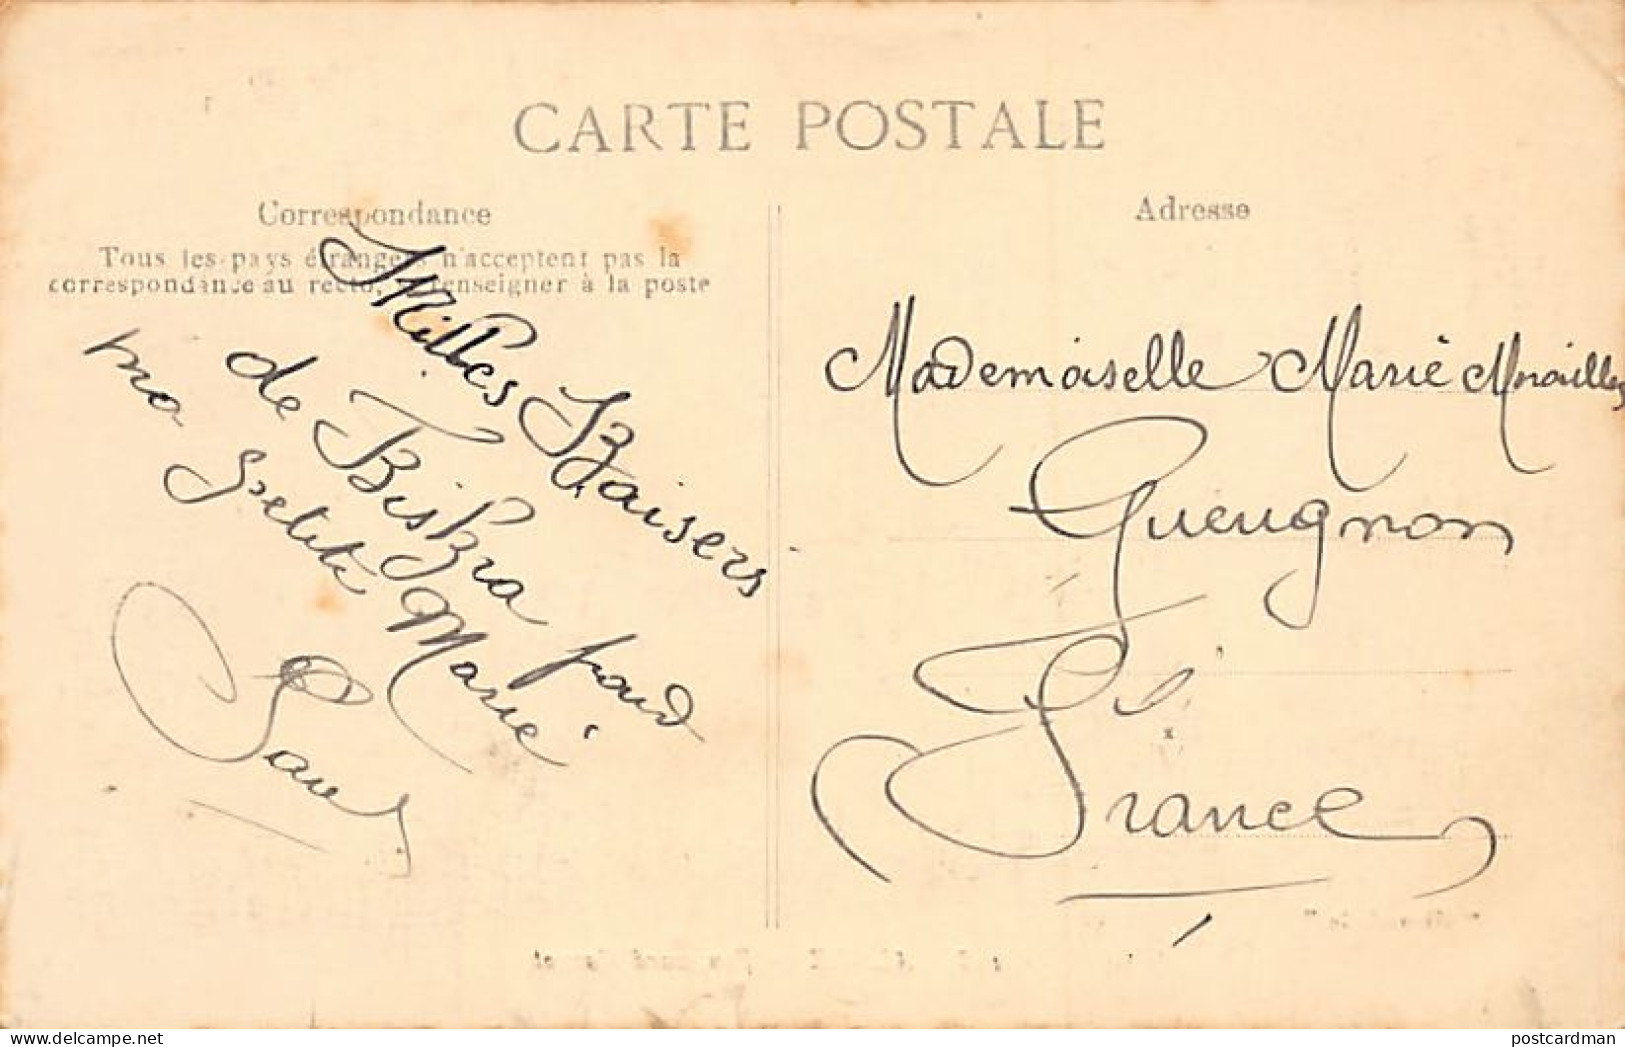 CARTE POSTALE
Correspondance
Tous les pays étrangers n'acceptent pas la
correspondance au recto, se renseigner à la poste
Milles Baisers
de Biskra pour
ma petite Marie
Adresse
Mademoiselle Marie
Gueugnon
France
postcardman